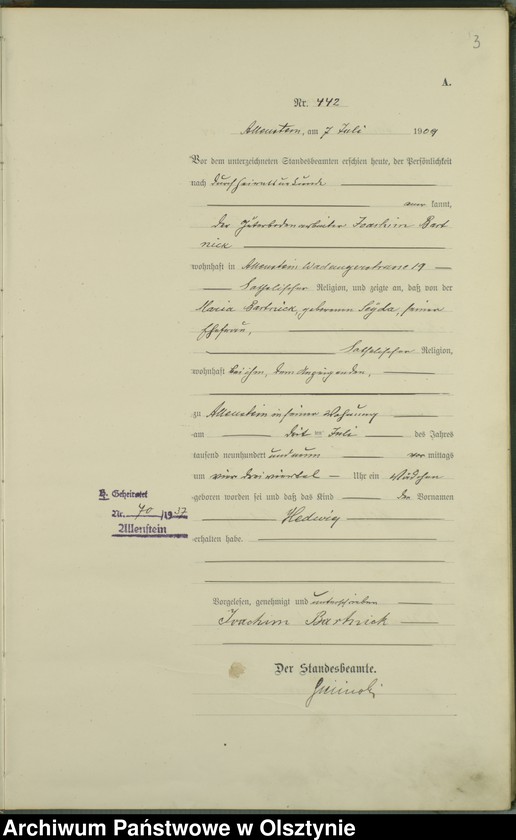 3
A.
Nr. 442
Allenstein, am 7 Juli 1909
Vor dem unterzeichneten Standesbeamten erschien heute, der Persönlichkeit
nach durch Heiratsurkunde
aner kannt,
der Güterbodenarbeiter Joachim Bart
nick
wohnhaft in Allenstein Wadangerstrasse 19
katholischer Religion, und zeigte an, daß von der
Maria Bartnick, geborenen Seyda, seiner
Ehefrau,
katholischer Religion,
wohnhaft bei ihm, dem Anzeigenden,
zu Allenstein in seiner Wohnung
am Juli des Jahres
tausend neunhundert und neun vor mittags
um vier dreiviertel Uhr ein Mädchen
geboren worden sei und daß das Kind den Vornamen
Hedwig
erhalten habe.
Geheiratet
Nr. 70/1937
Allenstein
Vorgelesen, genehmigt und unterschrieben
Joachim Bartnick
Der Standesbeamte.
Archiwum Państwowe w Olsztynie